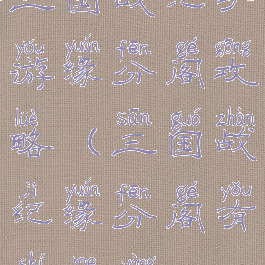 yóu yuán fēn gé gōng
游缘分阁攻
lüè sān guó zhàn
略（三国战
jì yuán fēn gé yǒu
纪缘分阁有